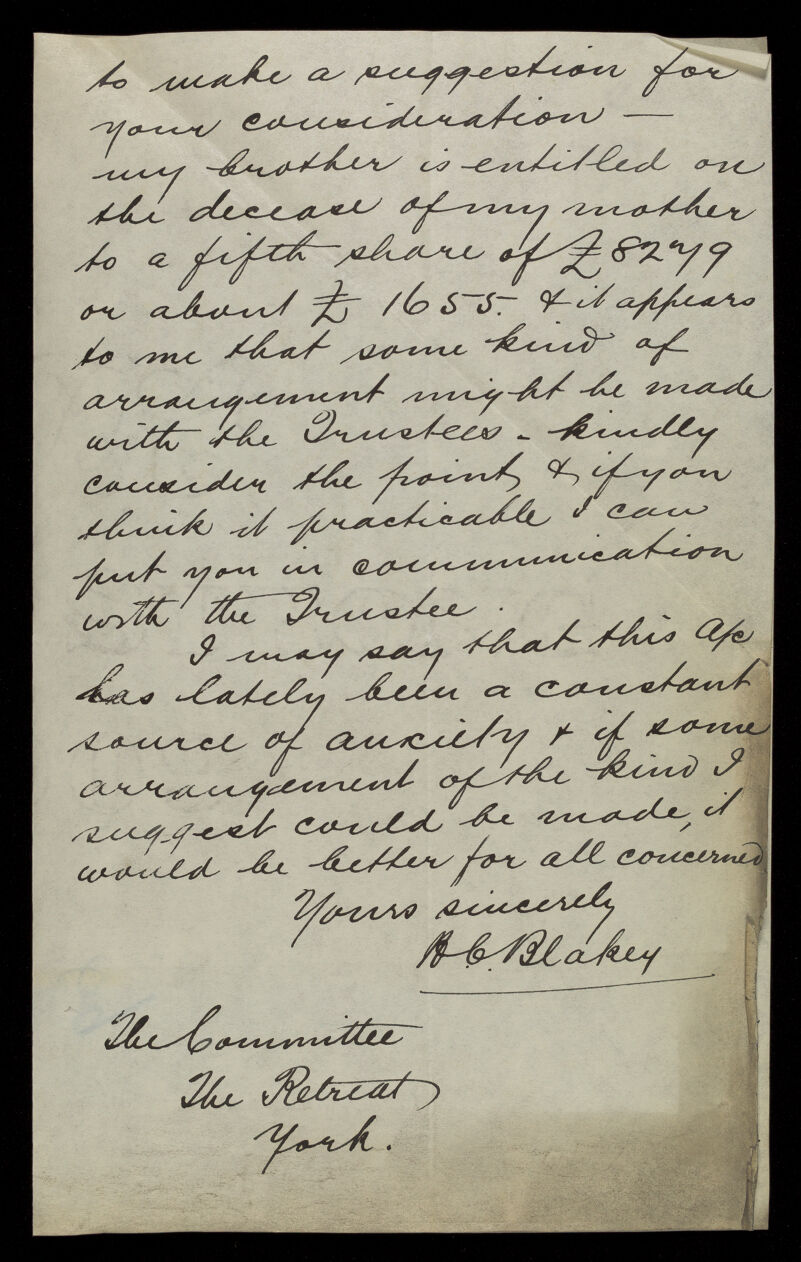 to make a suggestion for
your consideration —
my brother is entitled on
the decease of my mother
to a fifth share of £8279
or about £1655. & it appears
to me that some kind of
arrangement might be made
with the Trustees - kindly
consider the point, & if you
think it practicable I can
put you in communication
with the Trustee.
I may say that this a/c
has lately been a constant
source of anxiety & if some
arrangement of the kind I
suggest could be made, it
would be better for all concerned
Yours sincerely
H. C. Blakey
The Committee
The Retreat
York.